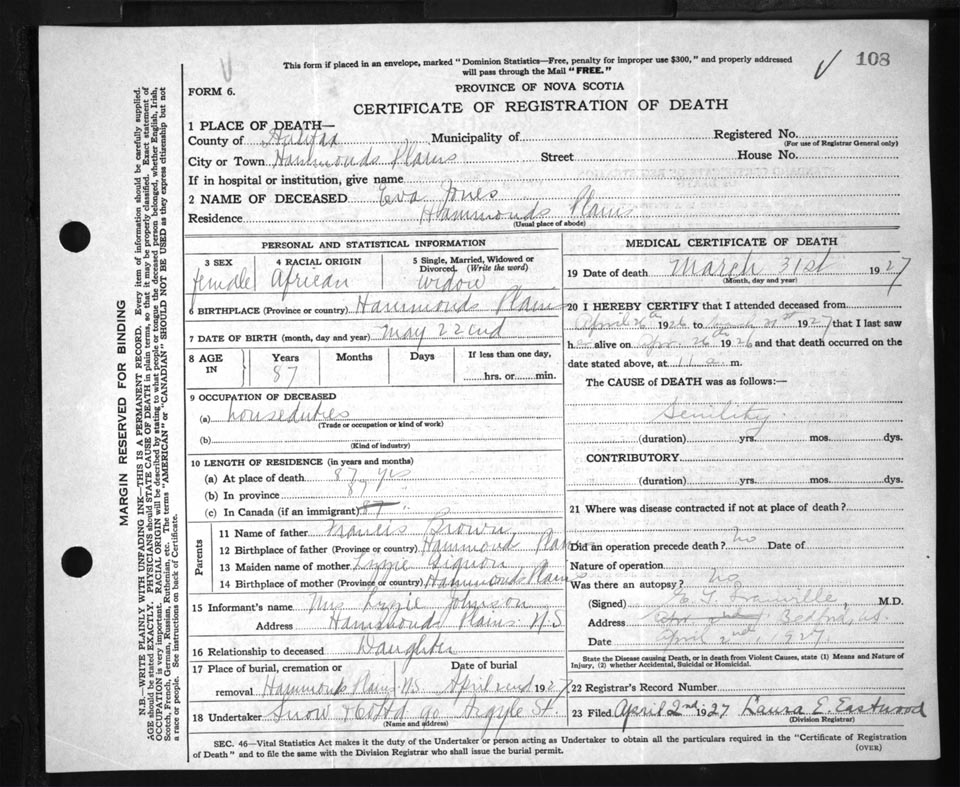 This form if placed in an envelope, marked "Dominion Statistics—Free, penalty for improper use $300," and properly addressed
will pass through the Mail "FREE."
108
FORM 6.
PROVINCE OF NOVA SCOTIA
CERTIFICATE OF REGISTRATION OF DEATH
1 PLACE OF DEATH—
County of Halifax Municipality of Registered No.
(For use of Registrar General only)
City or Town Hammonds Plains Street House No.
If in hospital or institution, give name
2 NAME OF DECEASED Eva Jones
Residence Hammonds Plains
(Usual place of abode)
PERSONAL AND STATISTICAL INFORMATION
3 SEX 4 RACIAL ORIGIN 5 Single, Married, Widowed or
Divorced. (Write the word)
female African widow
6 BIRTHPLACE (Province or country) Hammonds Plains
7 DATE OF BIRTH (month, day and year) May 22end
8 AGE IN Years Months Days If less than one day,
87 hrs. or min.
9 OCCUPATION OF DECEASED
(a) houseduties
(Trade or occupation or kind of work)
(b)
(Kind of industry)
10 LENGTH OF RESIDENCE (in years and months)
(a) At place of death 87 yrs
(b) In province 87 "
(c) In Canada (if an immigrant) 87 "
Parents
11 Name of father Francis Brown
12 Birthplace of father (Province or country) Hammond Plains
13 Maiden name of mother
14 Birthplace of mother (Province or country) Hammonds Plains
15 Informant's name Mrs Johnson
Address Hammonds Plains N.S
16 Relationship to deceased Daughter
17 Place of burial, cremation or Date of burial
removal Hammonds Plains NS April 2end 1927
18 Undertaker Snow & Co Ltd 90 Argyle St.
(Name and address)
MEDICAL CERTIFICATE OF DEATH
19 Date of death March 31st 1927
(Month, day and year)
20 I HEREBY CERTIFY that I attended deceased from
April 26th 1926 to March 31st 1927 that I last saw
h alive on Apr. 26th 1926 and that death occurred on the
date stated above, at 11 a m.
The CAUSE of DEATH was as follows:—
Senility
(duration) yrs. mos. dys.
CONTRIBUTORY
(duration) yrs. mos. dys.
21 Where was disease contracted if not at place of death?
Did an operation precede death? No Date of
Nature of operation
Was there an autopsy? No
(Signed) M.D.
Address Bedford, N.S.
Date April 2nd, 1927.
State the Disease causing Death, or in death from Violent Causes, state (1) Means and Nature of
Injury, (2) whether Accidental, Suicidal or Homicidal.
22 Registrar's Record Number
23 Filed April 2nd 1927 Laura E. Eastwood
(Division Registrar)
SEC. 46—Vital Statistics Act makes it the duty of the Undertaker or person acting as Undertaker to obtain all the particulars required in the "Certificate of Registration
of Death" and to file the same with the Division Registrar who shall issue the burial permit.
(OVER)
MARGIN RESERVED FOR BINDING
N.B.—WRITE PLAINLY WITH UNFADING INK—THIS IS A PERMANENT RECORD. Every item of information should be carefully supplied.
AGE should be stated EXACTLY. PHYSICIANS should STATE CAUSE OF DEATH in plain terms, so that it may be properly classified. Exact statement of
OCCUPATION is very important. RACIAL ORIGIN will be described by stating to what people or tongue the deceased person belonged, whether English, Irish,
Scotch, French, German, Russian, Ruthenian, etc. The terms "AMERICAN" or "CANADIAN" SHOULD NOT BE USED as they express citizenship but not
a race or people. See instructions on back of Certificate.